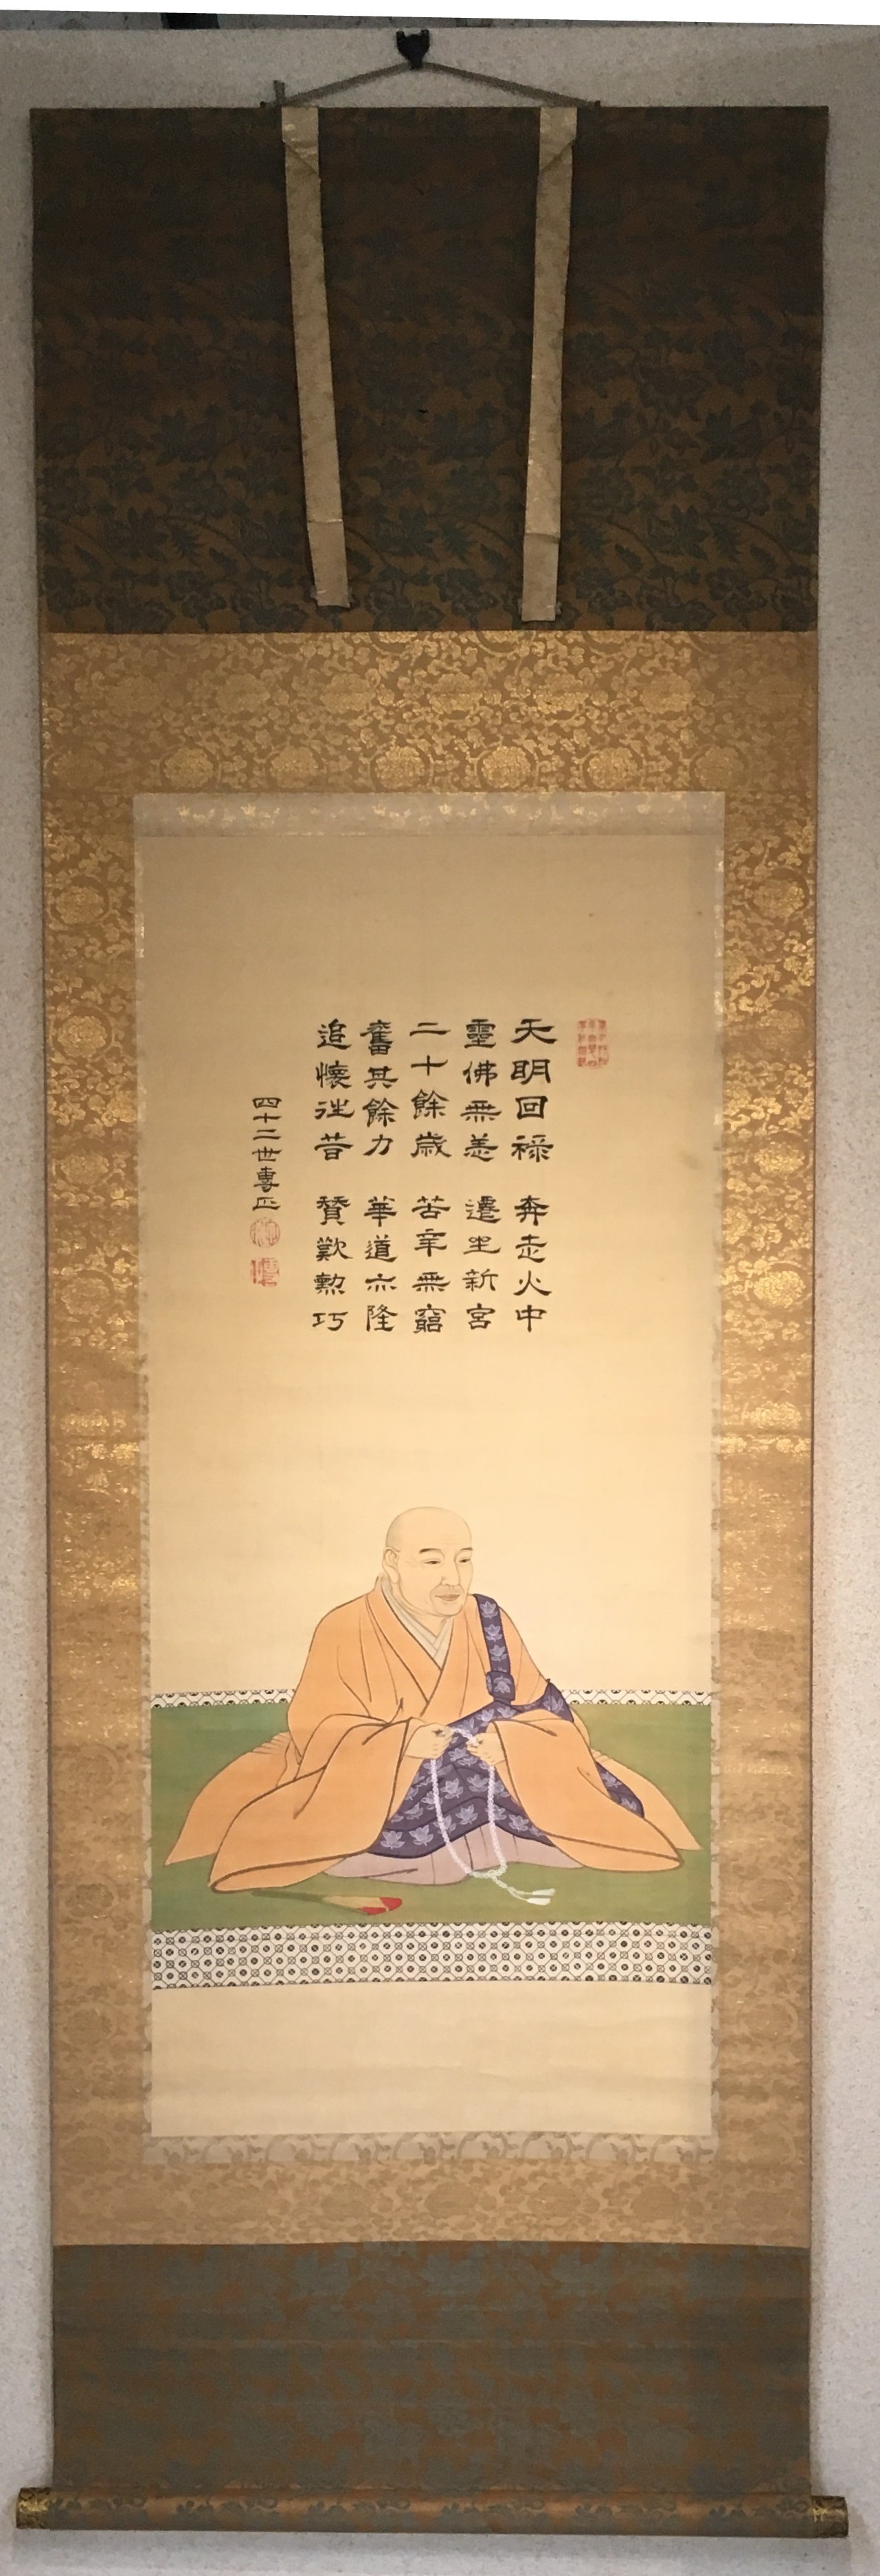 天明回祿 奔走火中
靈佛無恙 遷坐新宮
二十餘歳 苦辛無窮
奮其餘力 華道亦隆
追懷往昔 贊歎勲巧
四十二世專正